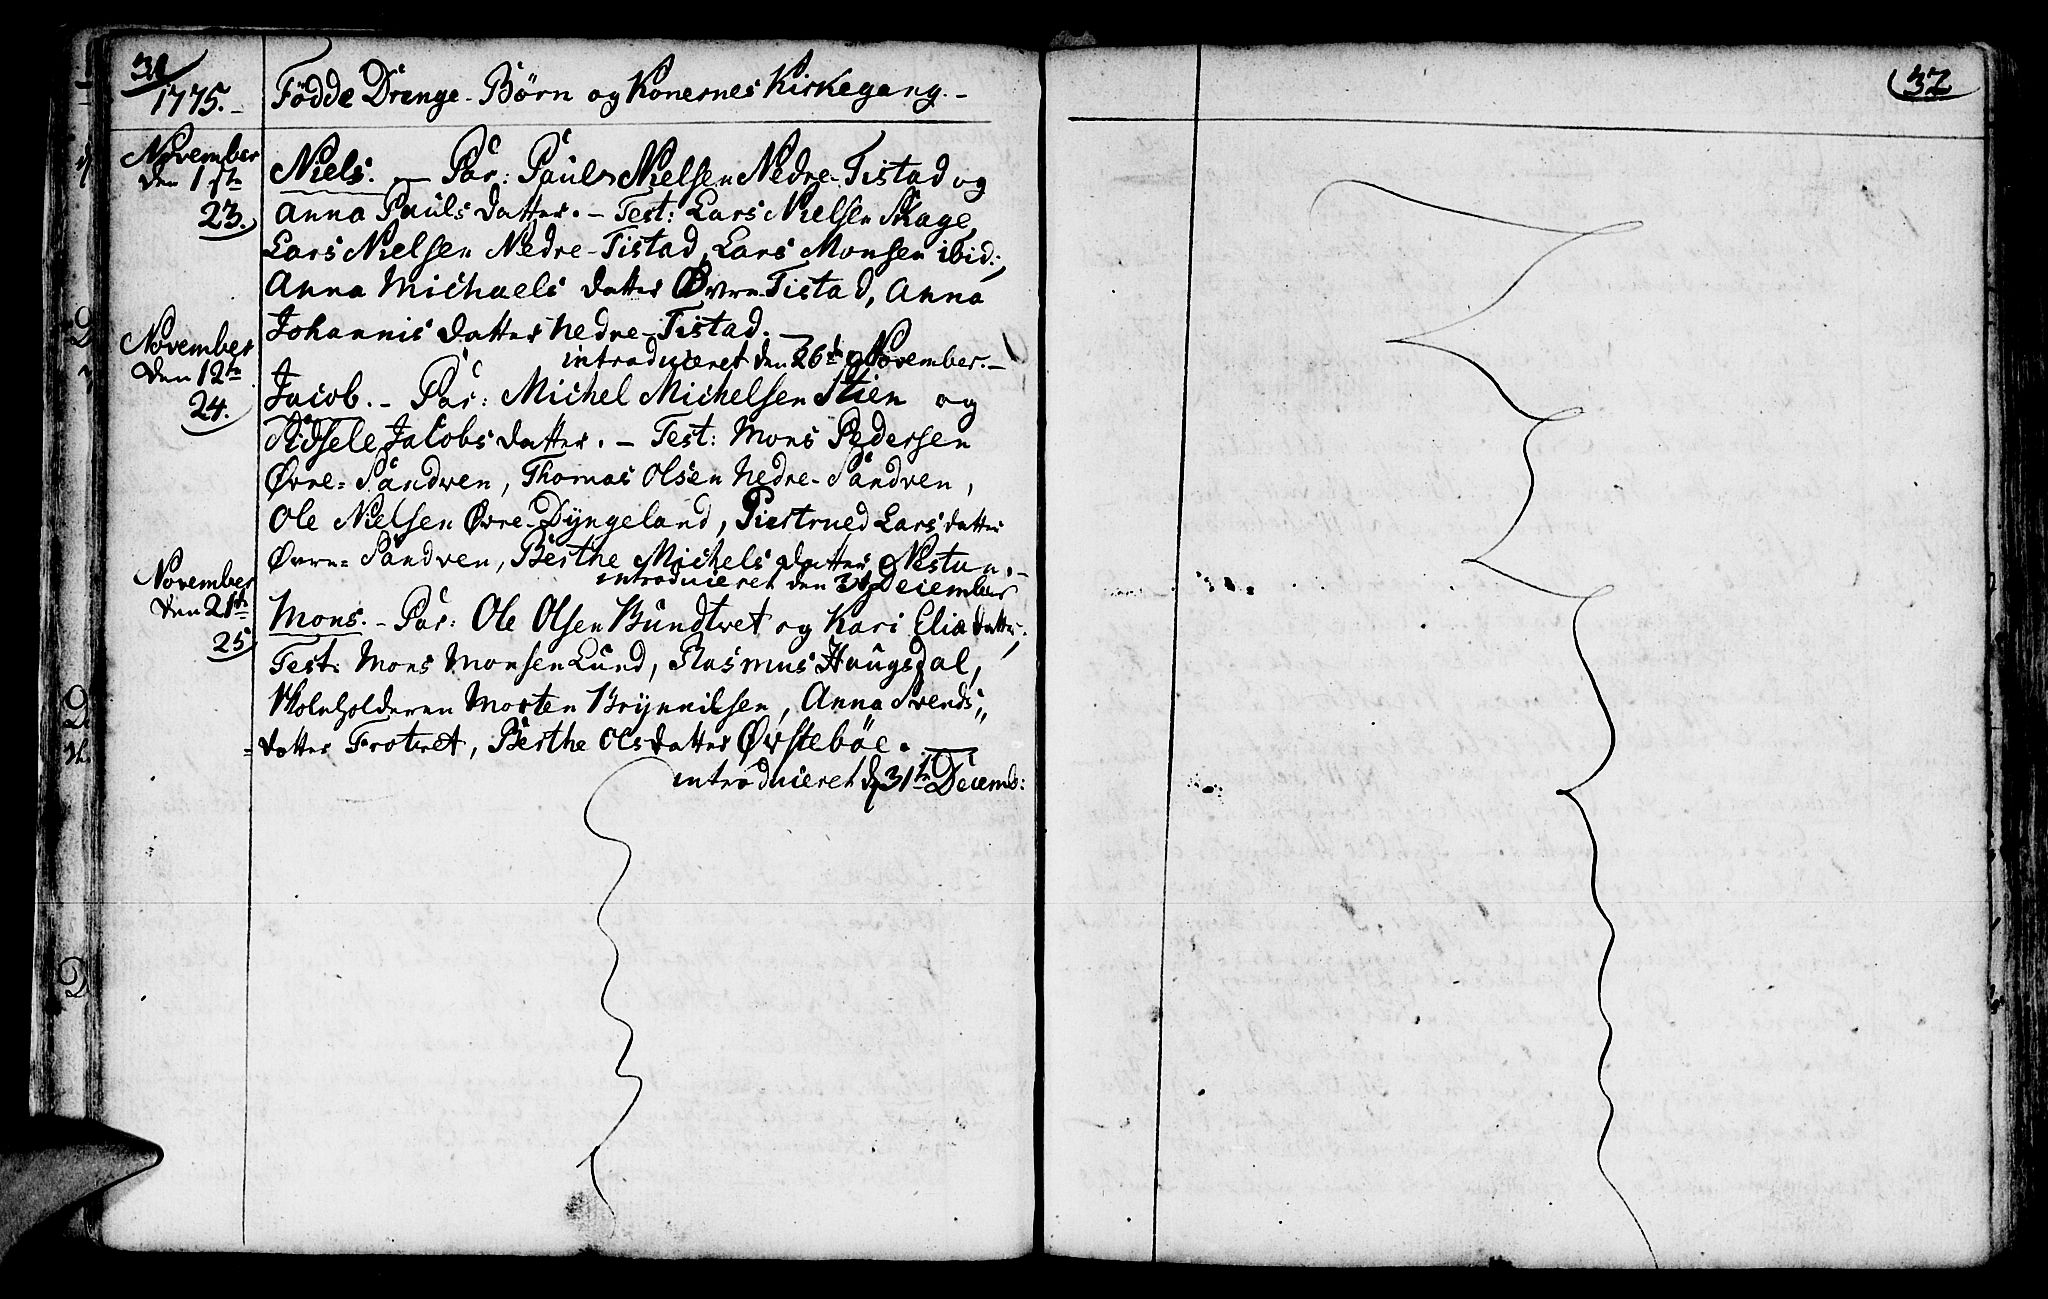 31
1775.-
Födde Drenge-Börn og Konernes Kirkegang.-
November
den 1ste
23.
Niels. - Par: Pauls Nielsen Nedre-Tistad og
Anna Pauls datter. - Test: Lars Nielsen Skage,
Lars Nielsen Nedre-Tistad, Lars Monsen ibid:,
Anna Michaels datter Øvre-Tistad, Anna
Johannis datter nedre-Tistad.
introduceret den 26de November.-
November
den 12te
24.
Jacob. - Par: Michel Michelsen Stien og
Sidsele Jacobs datter. - Test: Mons Pedersen
Øvre-Sandven, Thomas Olsen Nedre-Sandven,
Ole Nielsen Øvre-Dyngeland, Lars datter
Øvre-Sandven, Berthe Michels datter Nestun.-
introducieret den 31 December
November
den 21te
25
Mons. - Par: Ole Olsen Bundtvet og Kari Eliædatter,
Test: Mons Monsen Lund, Rasmus Haugsdal,
Morten Brynnilsen, Anna Svends"
=datter Frotvet, Berthe Olsdatter Ørstebøe.
introducieret d. 31te Decemb:
32